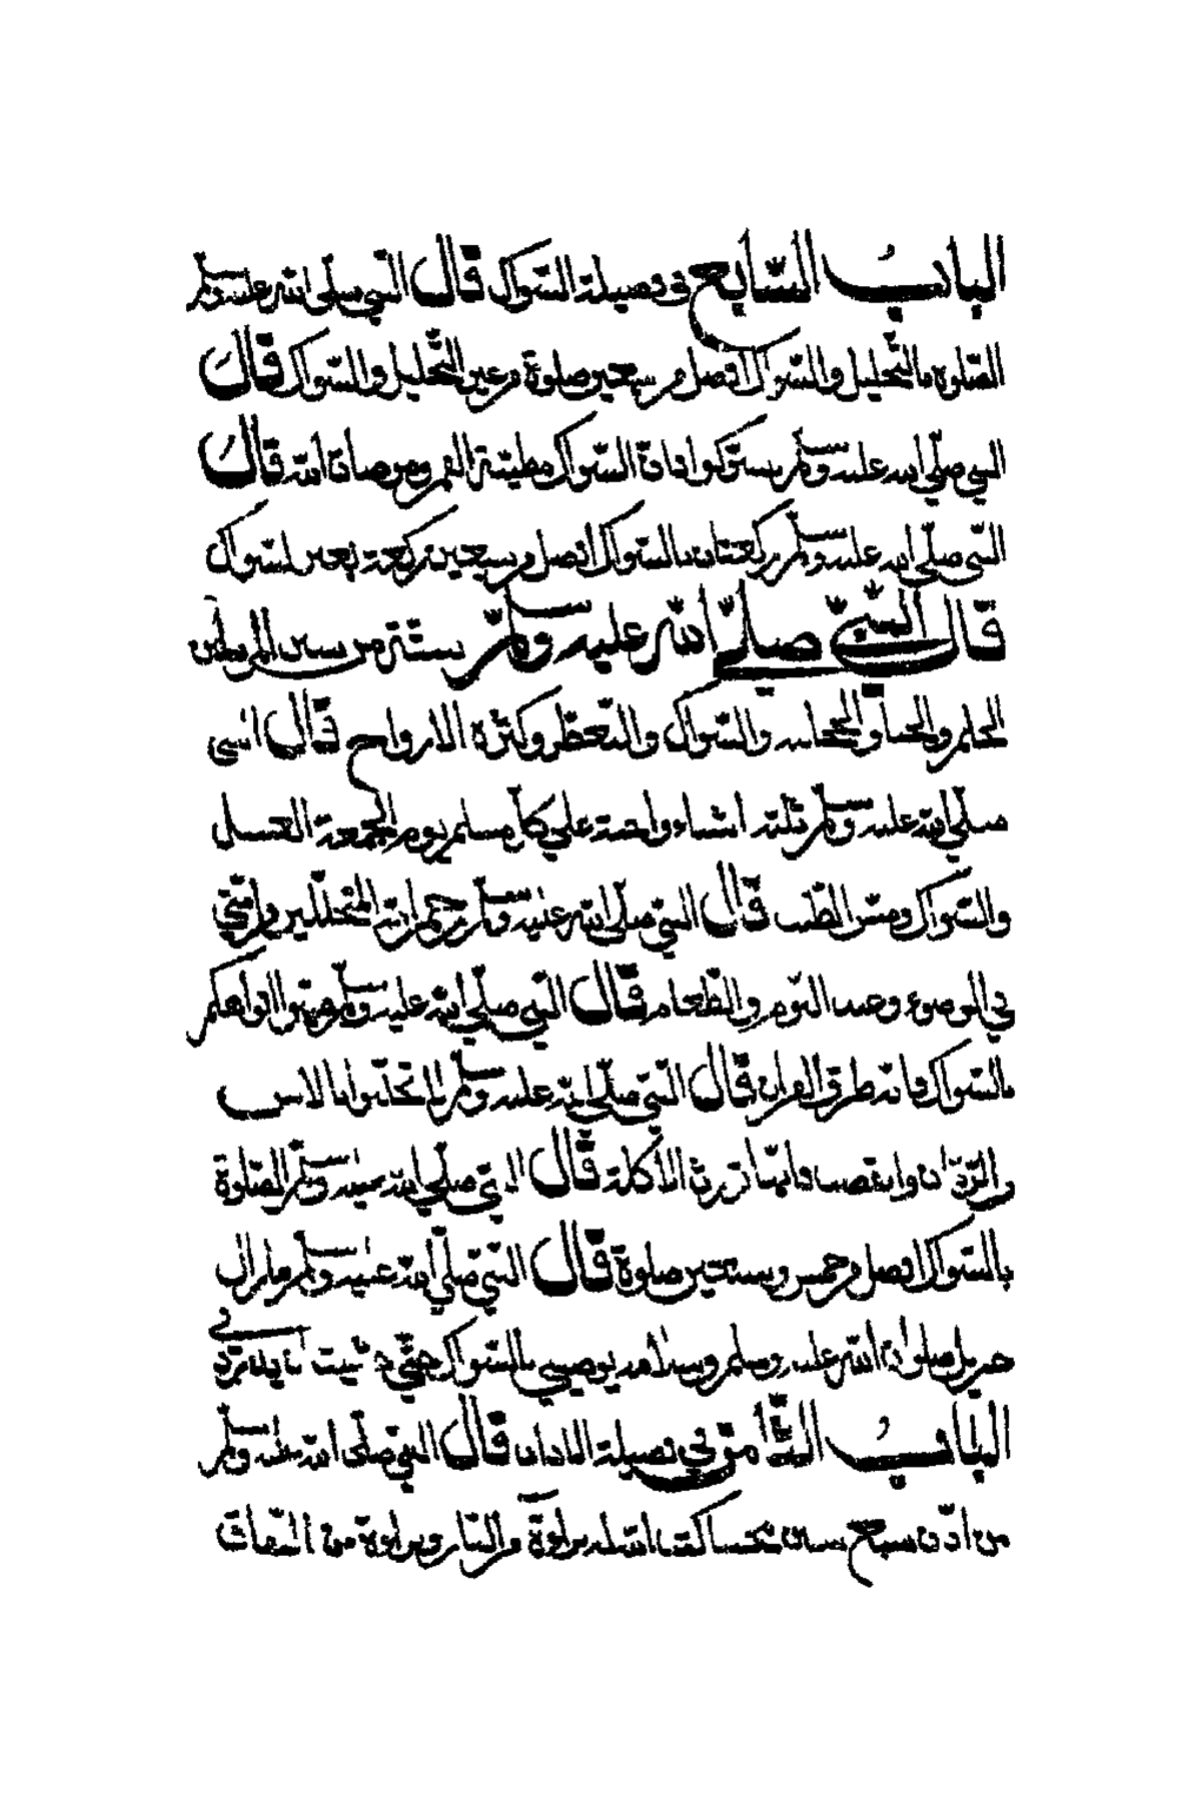 الباب السابع في فضيلة السواك قال النبي صلى الله عليه وسلم
الصلوة بالتخليل والسواك افضل من سبعين صلوة من غير التخليل والسواك قال
النبي صلي الله عليه وسلم يستوكوا فان السواك مطيبة الفم ومرضاة الله قال
النبي صلي الله عليه وسلم ركعتان بالسواك افضل من سبعين ركعة بغير سواك
قال النبي صلي الله عليه وسلم ستة من سنن المرسلين
الحلم والحيا والحجامة والسواك والتعطر وكثرة الازواج قال النبي
صلي الله عليه وسلم ثلثة اشياء واجبة علي كل مسلم يوم الجمعة الغسل
والسواك ومس الطيب قال النبي صلي الله عليه وسلم رحم الله المتخللين من امتي
في الوضوء وعند النوم والطعام قال النبي صلي الله عليه وسلم طيبوا افواهكم
بالسواك فانه طرق القران قال النبي صلي الله عليه وسلم لا تخللوا بالاس
والقصب فانها تورث الاكلة قال النبي صلي الله عليه وسلم الصلوة
بالسواك افضل من خمس وستين صلوة قال النبي صلي الله عليه وسلم ما زال
جبريل صلوات الله عليه وسلم وسلامه يوصيني بالسواك حتي خشيت
الباب الثامن في فضيلة الاذان قال النبي صلى الله عليه وسلم
من اذن سبع سنين محتسبا كتب الله له براءة من النار وبراءة من النفاق